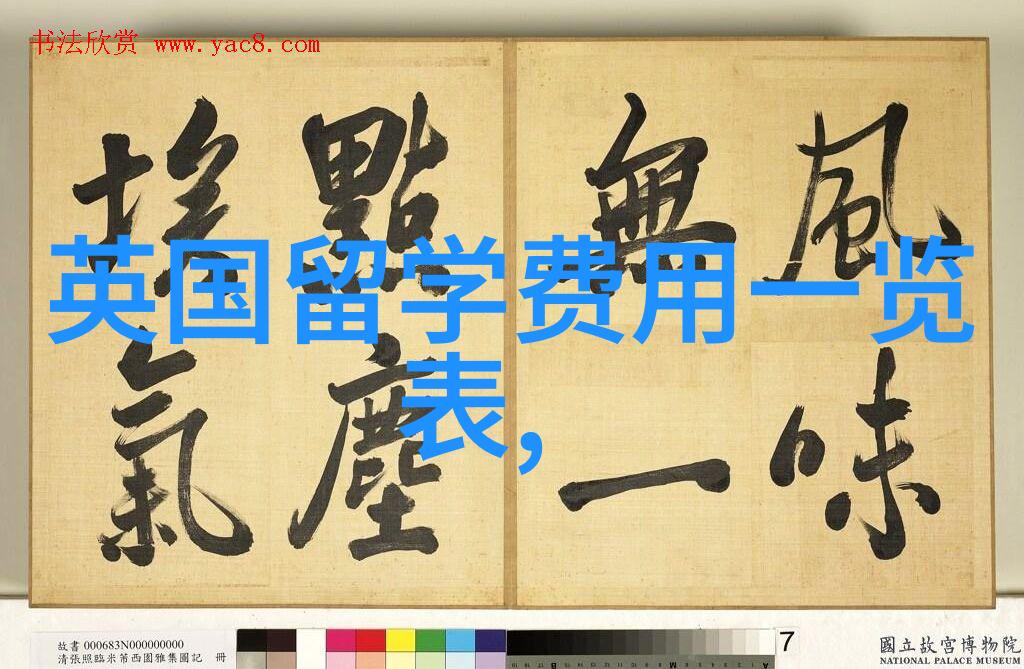 书法欣赏 www.yac8.com
英国留学费用一览
表,
風味
無一
點塵
埃氣
故書 000683N000000000
清張照臨米芾西園雅集圖記 冊
7
國立故宮博物院
NATIONAL PALACE MUSEUM